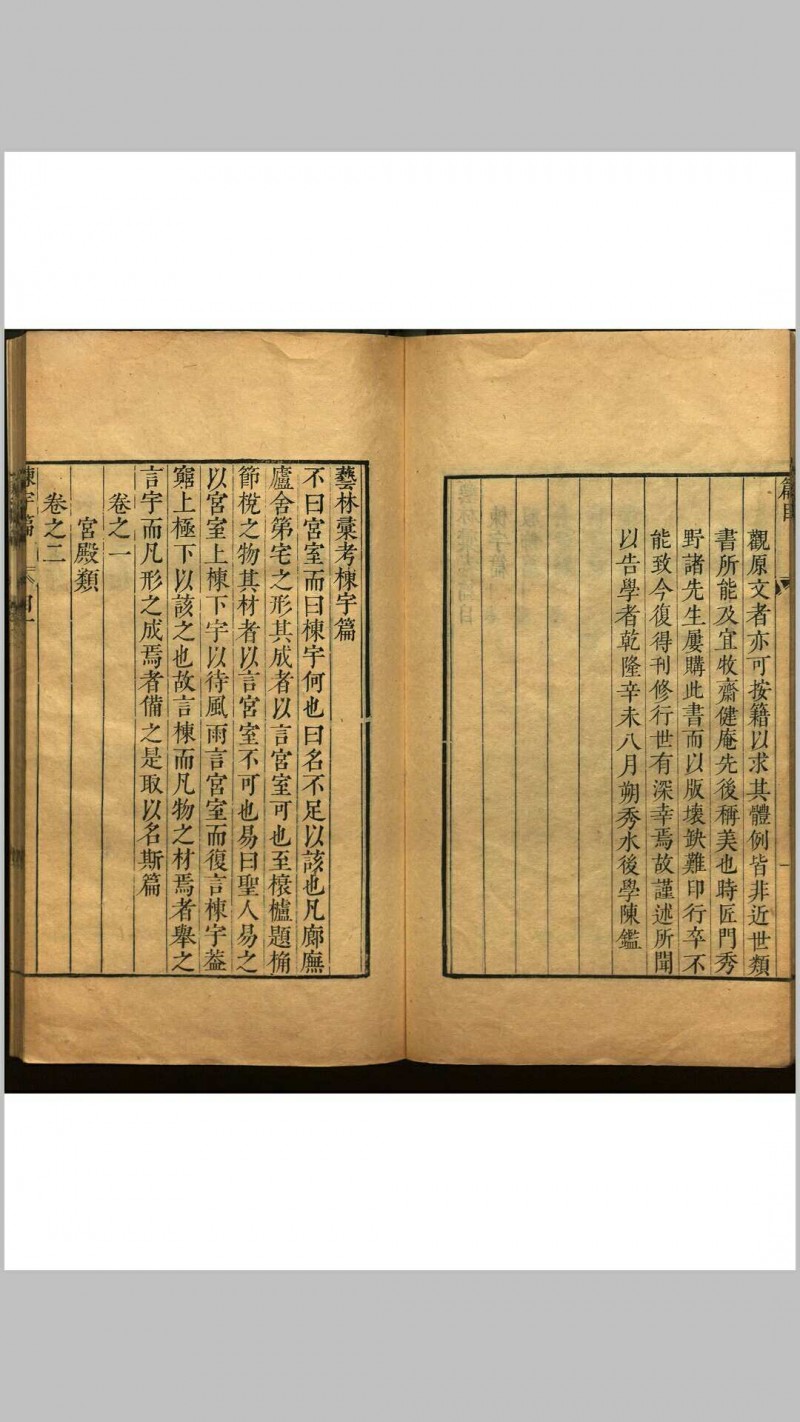 篇目
觀原文者亦可按籍以求其體例皆非近世類
書所能及宜牧齋健庵先後稱美也時匠門秀
野諸先生屢購此書而以版壞缺難印行卒不
能致今復得刊修行世有深幸焉故謹述所聞
以告學者乾隆辛未八月朔秀水後學陳鑑
藝林彙考棟宇篇
不曰宮室而曰棟宇何也曰名不足以該也凡廊廡
廬舍第宅之形其成者以言宮室可也至榱櫨題桷
節梲之物其材者以言宮室不可也易曰聖人易之
以宮室上棟下宇以待風雨言宮室而復言棟宇葢
窮上極下以該之也故言棟而凡物之材焉者舉之
言宇而凡形之成焉者備之是取以名斯篇
卷之一
宮殿類
卷之二
棟宇篇